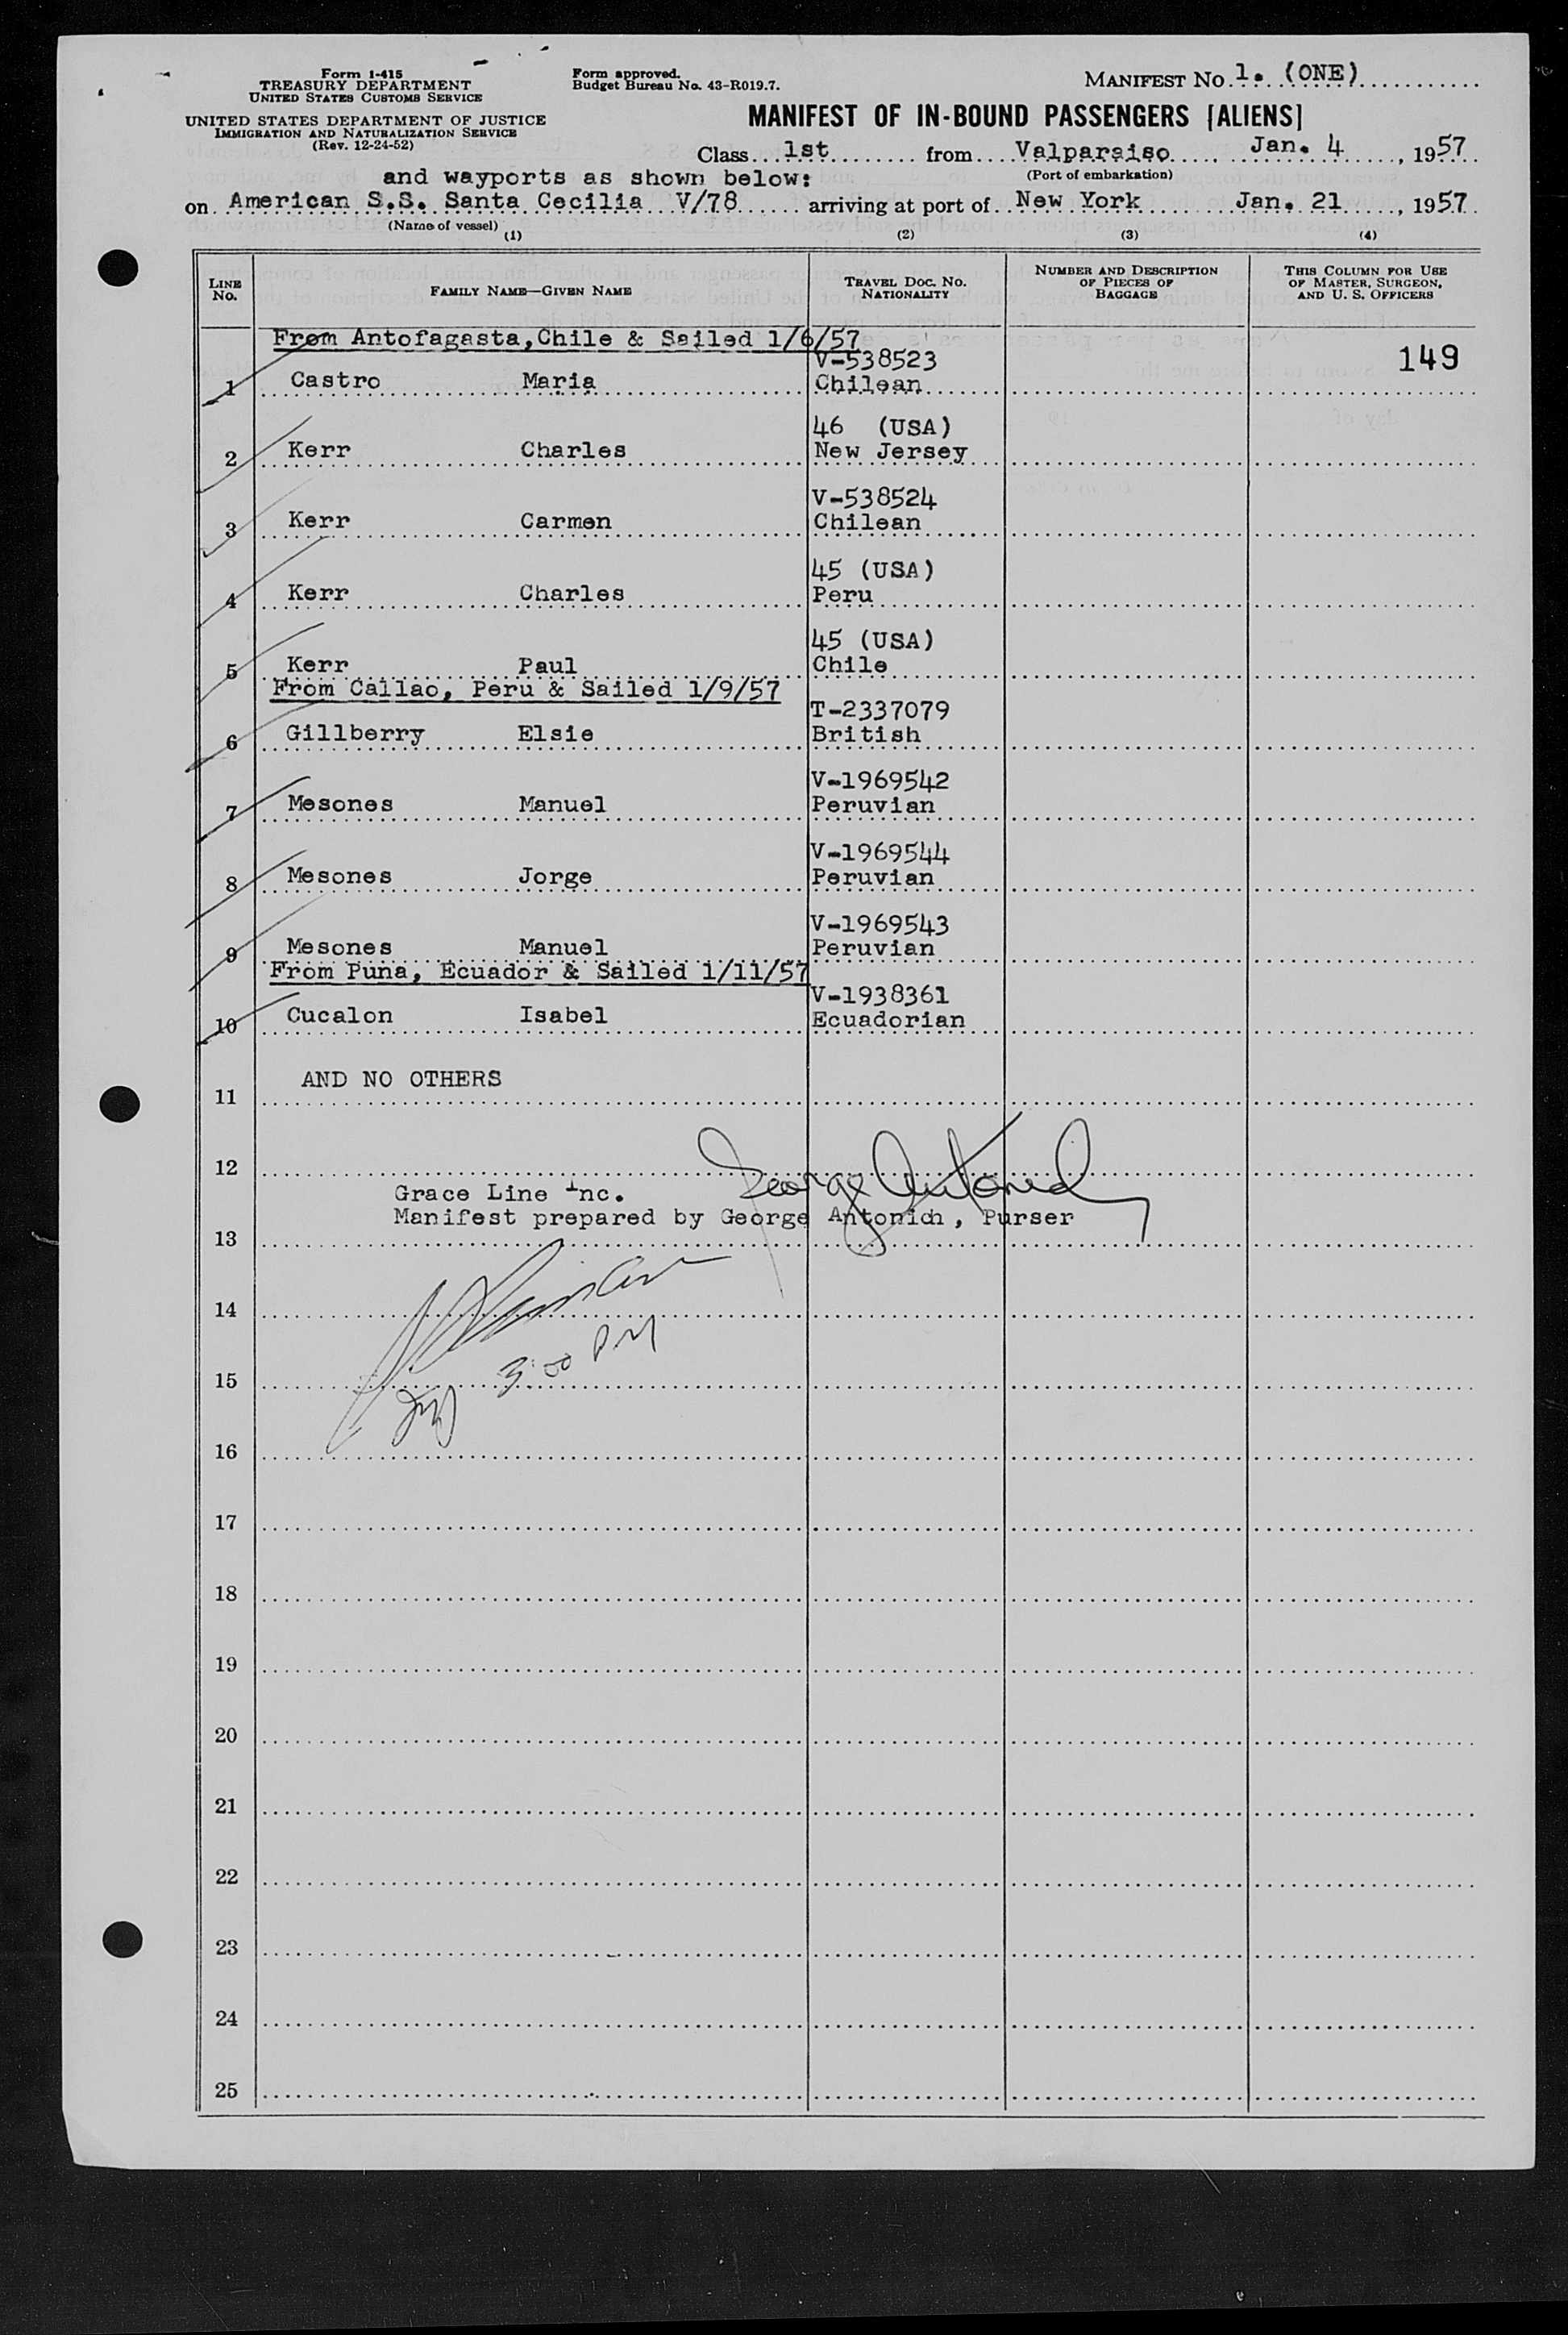 Form I-415
TREASURY DEPARTMENT
UNITED STATES CUSTOMS SERVICE
UNITED STATES DEPARTMENT OF JUSTICE
IMMIGRATION AND NATURALIZATION SERVICE
(Rev. 12-24-52)
Form approved.
Budget Bureau No. 43-R019.7.
MANIFEST NO. 1. (ONE)
MANIFEST OF IN-BOUND PASSENGERS [ALIENS]
Class 1st from Valparaiso Jan. 4, 1957
and wayports as shown below:
(Port of embarkation)
on American S.S. Santa Cecilia V/78 arriving at port of New York Jan. 21, 1957
(Name of vessel)
(1) (2) (3) (4)
LINE NO.
FAMILY NAME—GIVEN NAME
TRAVEL DOC. NO. NATIONALITY
NUMBER AND DESCRIPTION OF PIECES OF BAGGAGE
THIS COLUMN FOR USE OF MASTER, SURGEON, AND U. S. OFFICERS
From Antofagasta, Chile & Sailed 1/6/57
V-538523 149
1 Castro Maria Chilean
46 (USA)
2 Kerr Charles New Jersey
V-538524
3 Kerr Carmen Chilean
45 (USA)
4 Kerr Charles Peru
45 (USA)
5 Kerr Paul Chile
From Callao, Peru & Sailed 1/9/57
T-2337079
6 Gillberry Elsie British
V-1969542
7 Mesones Manuel Peruvian
V-1969544
8 Mesones Jorge Peruvian
V-1969543
9 Mesones Manuel Peruvian
From Puna, Ecuador & Sailed 1/11/57
V-1938361
10 Cucalon Isabel Ecuadorian
AND NO OTHERS
11
12 George Antonich
Grace Line Inc.
Manifest prepared by George Antonich, Purser
13
14
3:00 PM
15
16
17
18
19
20
21
22
23
24
25